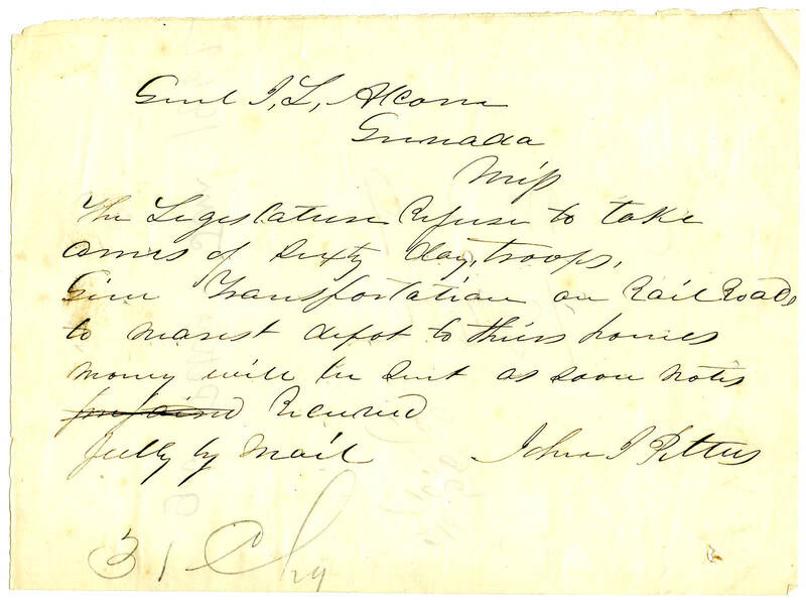 Genl J, L, Alcorn
Grenada
Miss
The Legeslature Refuse to take
arms of sixty day, troops,
Give Transportation on Rail Roads
to nearest depot to thier homes
money will be sent as soon notes
Received
fully by Mail
John J Pettus
31